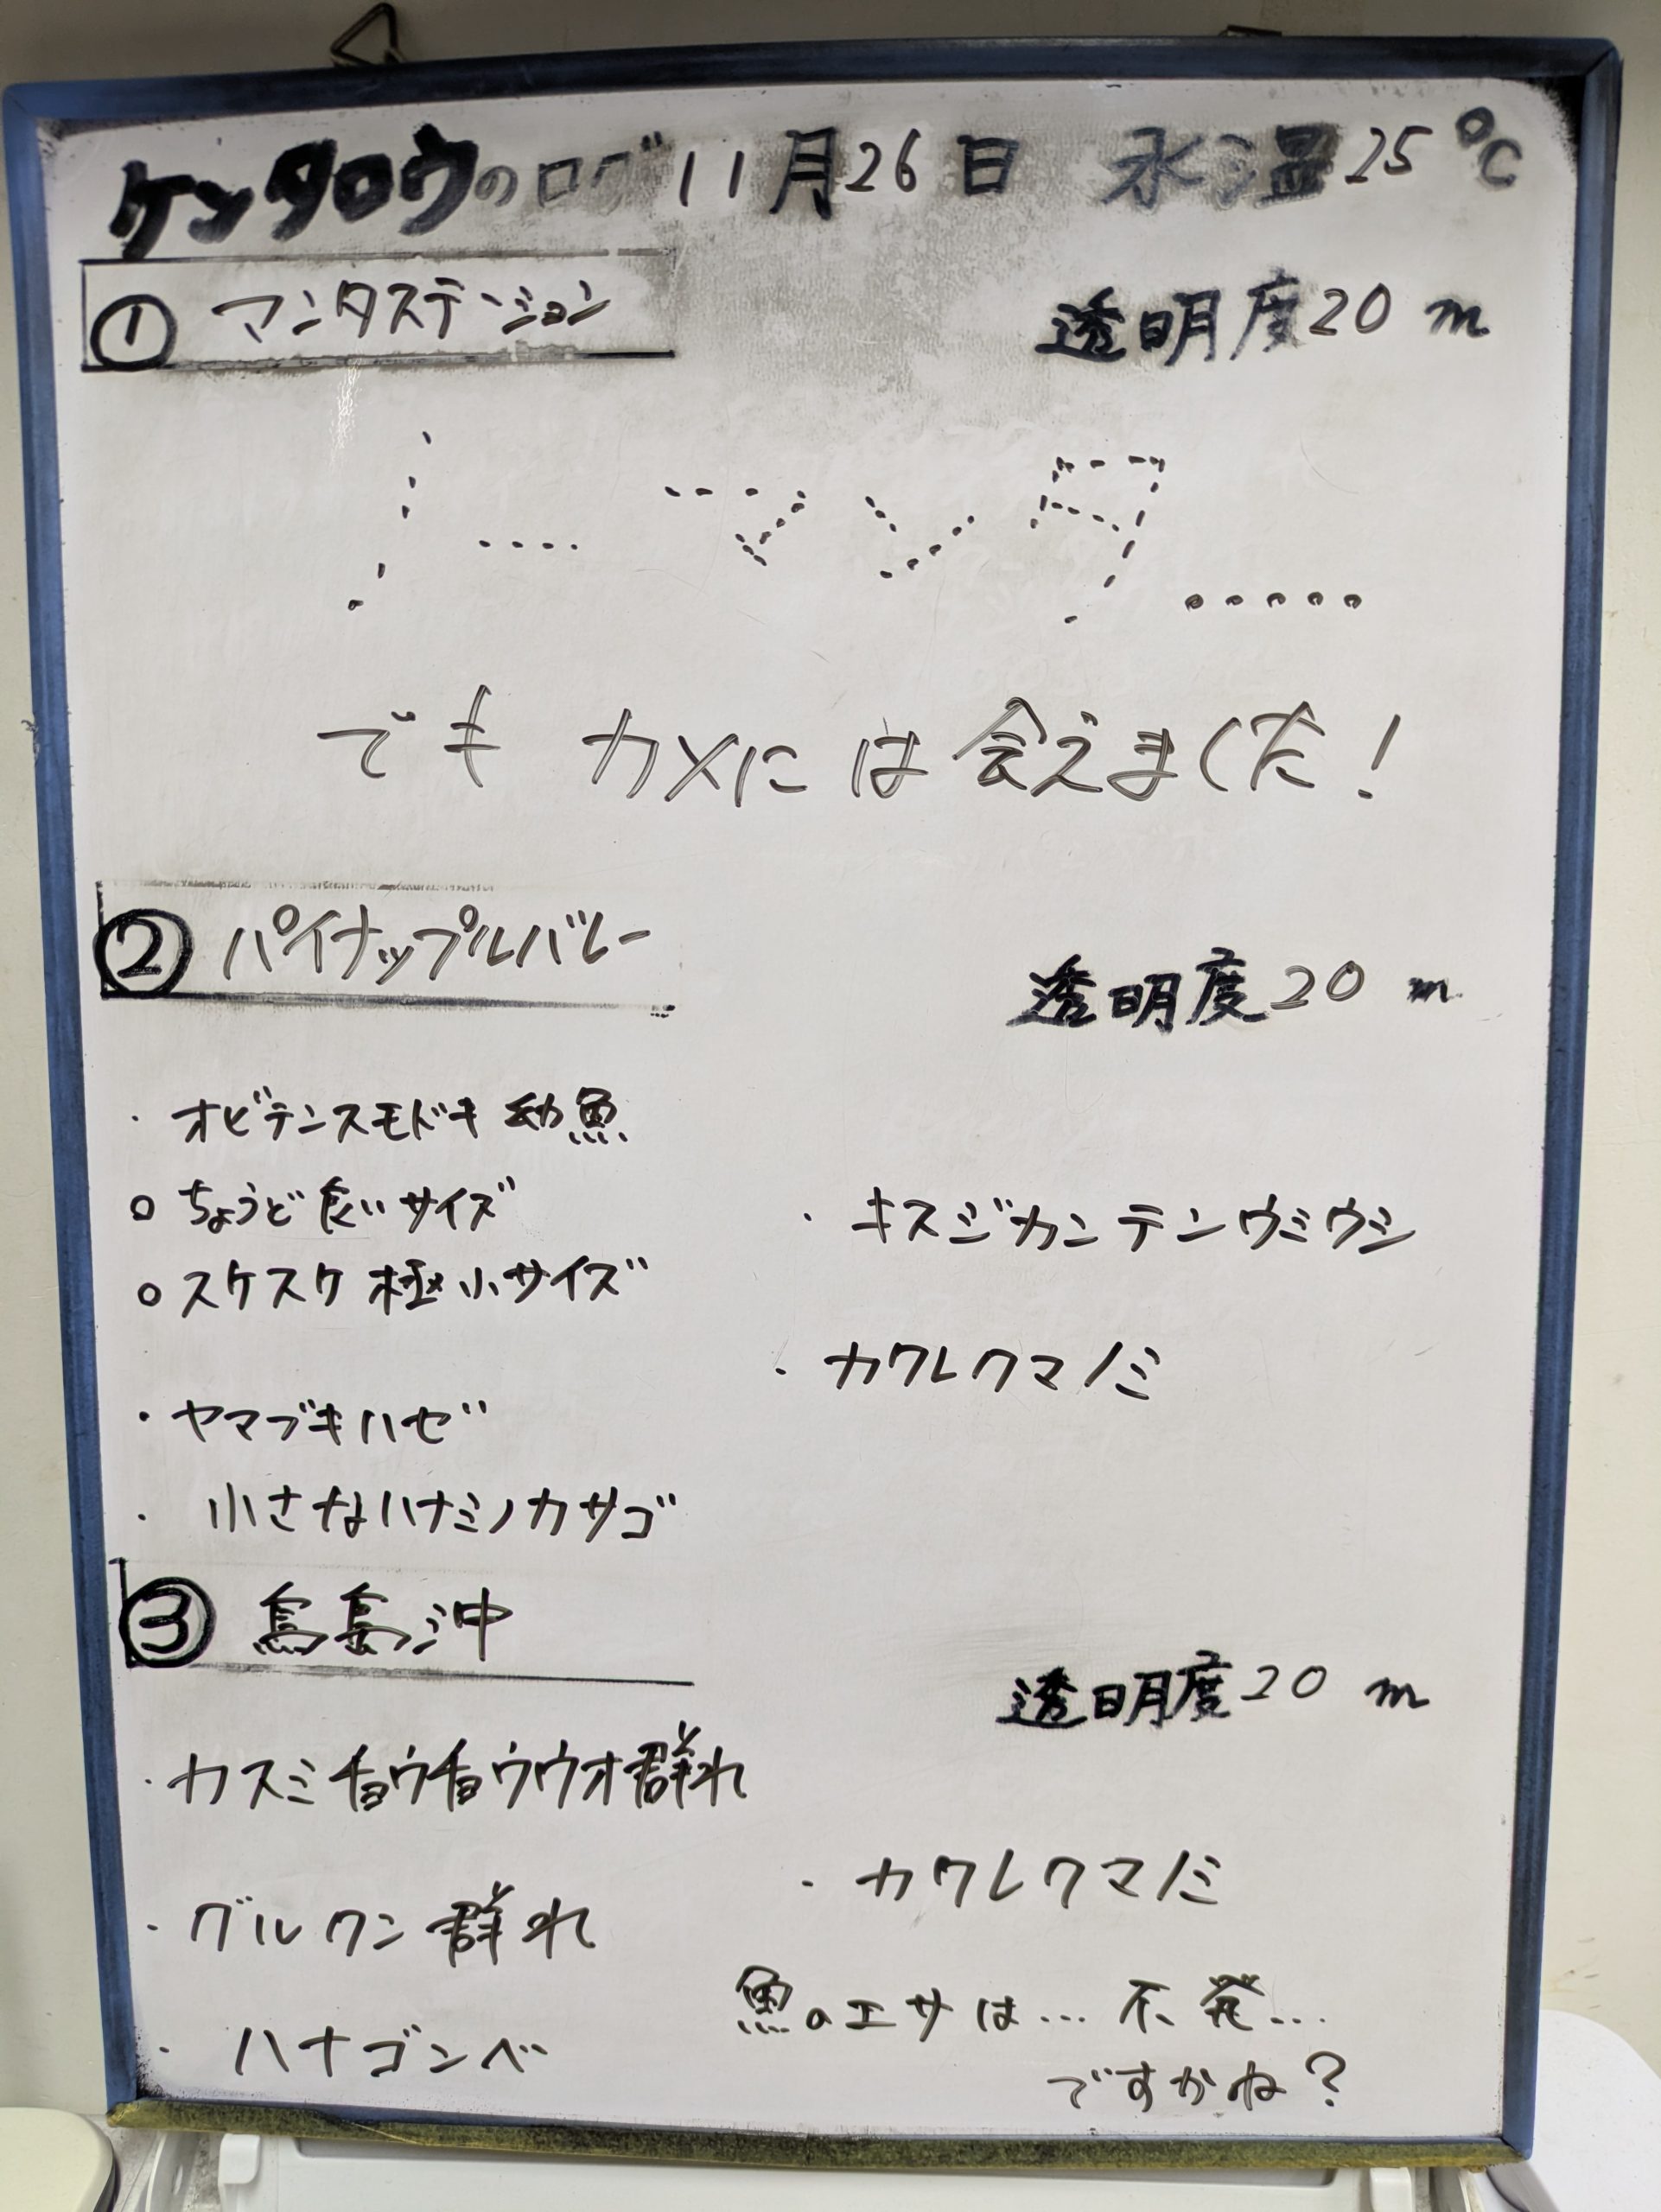 ケンタロウのログ 11月26日 水温25℃
① マンタステーション
透明度20m
ノーマンタ.....
でも カメには会えました!
② パイナップルバレー
透明度20m
・オビテンスモドキ 幼魚
○ちょうど良いサイズ
○スケスケ極小サイズ
・ヤマブキハゼ
・小さなハナミノカサゴ
・キスジカンテンウミウシ
・カクレクマノミ
③ 鳥島沖
透明度20m
・カスミチョウチョウウオ群れ
・グルクン群れ
・ハナゴンベ
・カクレクマノミ
魚のエサは…不発…
ですかね?